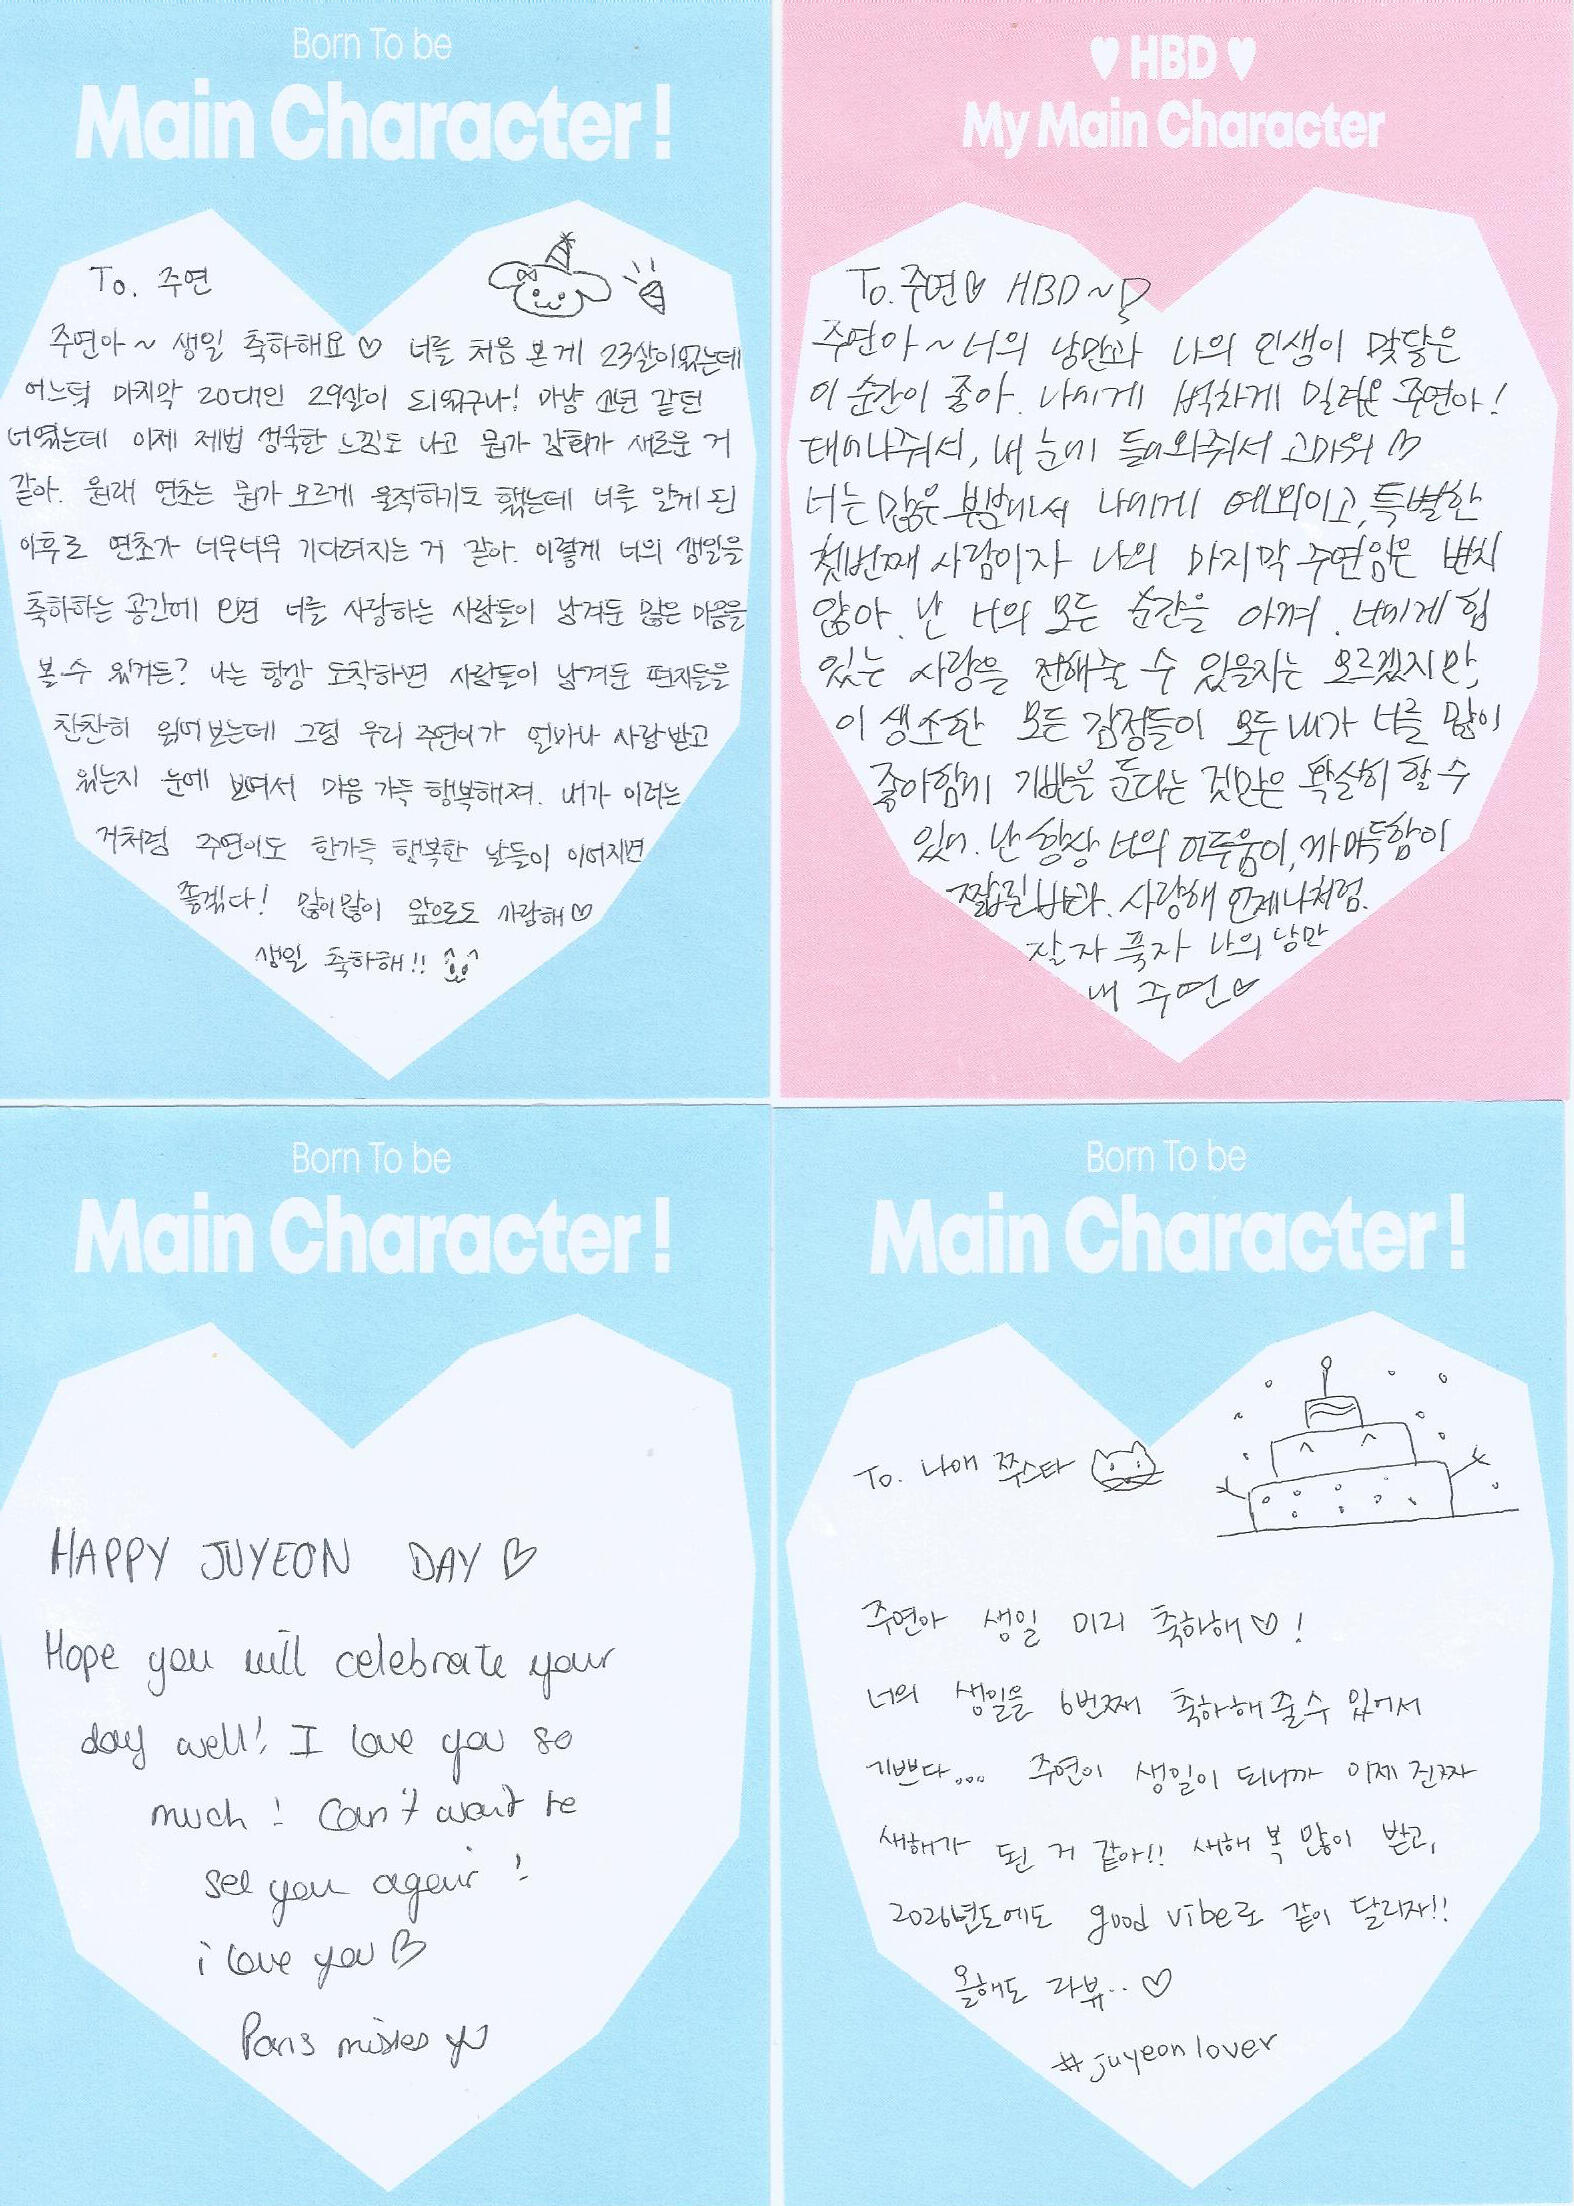 Born To be
Main Character!
To. 주연
주연아~ 생일 축하해요♡ 너를 처음 본게 23살이었는데
어느덧 마지막 20대인 29살이 되었구나! 마냥 소년 같던
너였는데 이제 제법 성숙한 느낌도 나고 뭔가 감회가 새로운 거
같아. 원래 연초는 뭔가 모르게 울적하기도 했는데 너를 알게 된
이후로 연초가 너무너무 기다려지는 거 같아. 이렇게 너의 생일을
축하하는 공간에 오면 너를 사랑하는 사람들이 남겨둔 많은 마음을
볼 수 있거든? 나는 항상 도착하면 사람들이 남겨둔 편지들을
찬찬히 읽어보는데 그럼 우리 주연이가 얼마나 사랑받고
있는지 눈에 보여서 마음 가득 행복해져. 내가 이러는
거처럼 주연이도 한가득 행복한 날들이 이어지면
좋겠다! 많이많이 앞으로도 사랑해♡
생일 축하해!!
♥ HBD ♥
My Main Character
To. 주연♡ HBD~
주연아~ 너의 낭만과 나의 인생이 맞닿은
이 순간이 좋아. 나에게 벅차게 밀려온 주연아!
태어나줘서, 내 눈에 들어와줘서 고마워♡
너는 많은 부분에서 나에게 예외이고, 특별한
첫번째 사람이자 나의 마지막 주연임은 변치
않아. 난 너의 모든 순간을 아껴. 너에게 힘
있는 사랑을 전해줄 수 있을지는 모르겠지만,
이 생소한 모든 감정들이 모두 내가 너를 많이
좋아함에 기반을 둔다는 것만은 확실히 할 수
있어. 난 항상 너의 어두움이, 까마득함이
짧길 바라. 사랑해 언제나처럼.
잘자 푹자 나의 낭만
내 주연♡
Born To be
Main Character!
HAPPY JUYEON DAY ♡
Hope you will celebrate your
day well! I love you so
much! Can't wait to
see you again!
i love you ♡
Paris misses you
Born To be
Main Character!
To. 나애 쭈스타
주연아 생일 미리 축하해♡!
너의 생일을 6번째 축하해줄수 있어서
기쁘다... 주연이 생일이 되니까 이제 진짜
새해가 된 거 같아!! 새해 복 많이 받고,
2026년도에도 good vibe로 같이 달리자!!
올해도 라뷰..♡
#juyeonlover